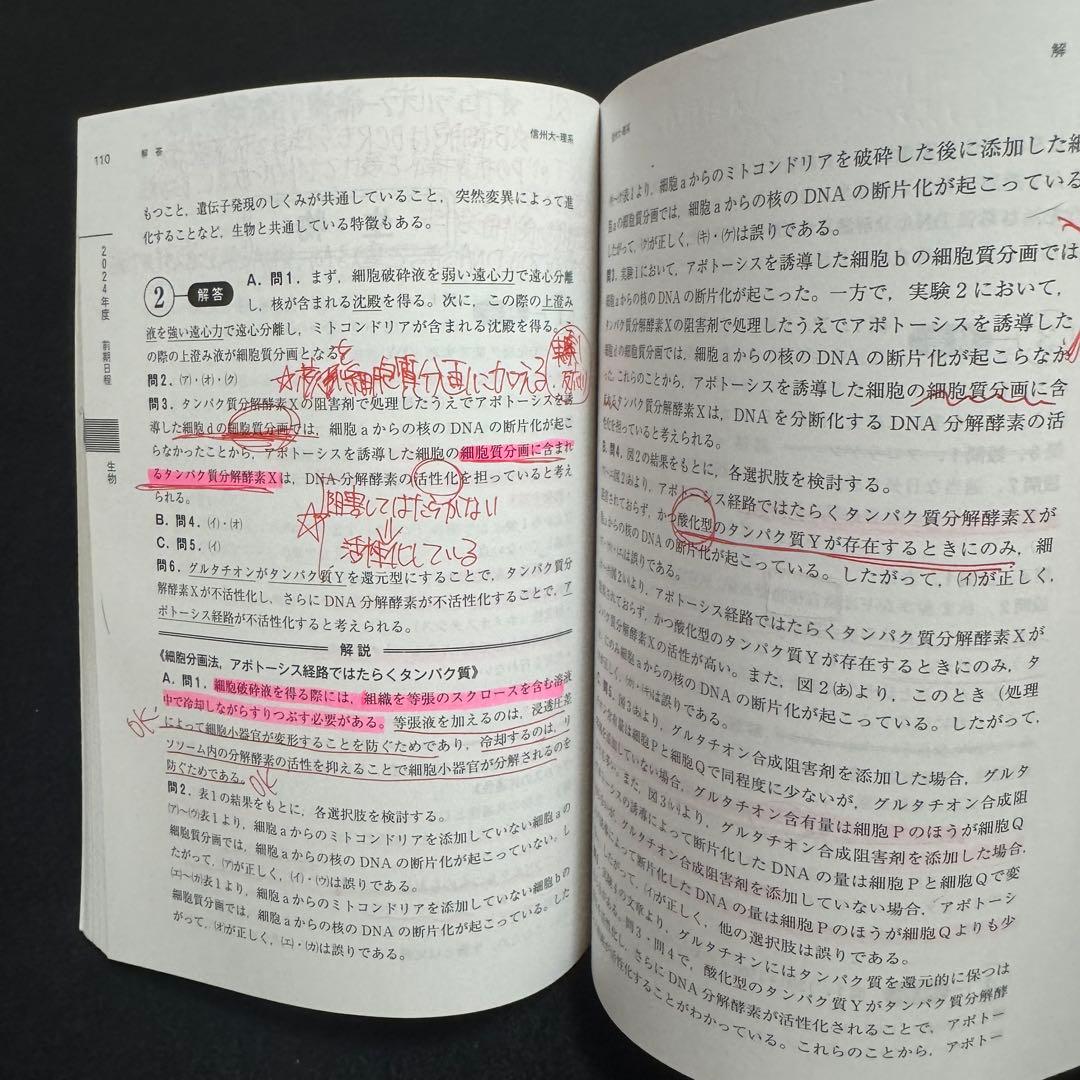 110 解答 信州大-理系
もつこと，遺伝子発現のしくみが共通していること，突然変異によって進
化することなど，生物と共通している特徴もある。
2024年度 前期日程
生物
2 解答 A．問1．まず，細胞破砕液を弱い遠心力で遠心分離
し，核が含まれる沈殿を得る。次に，この際の上澄み
液を強い遠心力で遠心分離し，ミトコンドリアが含まれる沈殿を得る。
の際の上澄み液が細胞質分画となる。
☆核を細胞質分画に加える
問2．㋐・㋔・㋗
問3．タンパク質分解酵素Xの阻害剤で処理したうえでアポトーシスを誘
導した細胞dの細胞質分画では，細胞aからの核のDNAの断片化が起こ
らなかったことから，アポトーシスを誘導した細胞の細胞質分画に含まれ
るタンパク質分解酵素Xは，DNA分解酵素の活性化を担っていると考え
られる。
☆阻害してはたらかない
⇓
活性化している
B．問4．㋑・㋔
C．問5．㋑
問6．グルタチオンがタンパク質Yを還元型にすることで，タンパク質分
解酵素Xが不活性化し，さらにDNA分解酵素が不活性化することで，ア
ポトーシス経路が不活性化すると考えられる。
解説
《細胞分画法，アポトーシス経路ではたらくタンパク質》
A．問1．細胞破砕液を得る際には，組織を等張のスクロースを含む溶液
中で冷却しながらすりつぶす必要がある。等張液を加えるのは，浸透圧差
OK
によって細胞小器官が変形することを防ぐためであり，冷却するのは，リ
ソソーム内の分解酵素の活性を抑えることで細胞小器官が分解されるのを
防ぐためである。
OK
問2．表1の結果をもとに，各選択肢を検討する。
㋐～㋒表1より，細胞aからのミトコンドリアを添加していない細胞aの
細胞質分画では，細胞aからの核のDNAの断片化が起こっていない。し
たがって，㋐が正しく，㋑・㋒は誤りである。
㋓～㋕表1より，細胞aからのミトコンドリアを添加していない細胞bの
細胞質分画では，細胞aからの核のDNAの断片化が起こっている。した
がって，㋔が正しく，㋓・㋕は誤りである。
解
信州大-理系
表1より，細胞aからのミトコンドリアを破砕した後に添加した細
胞aの細胞質分画では，細胞aからの核のDNAの断片化が起こっている
したがって，㋗が正しく，㋖・㋘は誤りである。
問3．実験1において，アポトーシスを誘導した細胞bの細胞質分画では
細胞aからの核のDNAの断片化が起こった。一方で，実験2において，
タンパク質分解酵素Xの阻害剤で処理したうえでアポトーシスを誘導した
細胞dの細胞質分画では，細胞aからの核のDNAの断片化が起こらなか
った。これらのことから，アポトーシスを誘導した細胞の細胞質分画に含
まれるタンパク質分解酵素Xは，DNAを分断化するDNA分解酵素の活
性化を担っていると考えられる。
B．問4．図2の結果をもとに，各選択肢を検討する。
図2㋐より，アポトーシス経路ではたらくタンパク質分解酵素Xが
阻害されておらず，かつ酸化型のタンパク質Yが存在するときにのみ，細
胞aからの核のDNAの断片化が起こっている。したがって，㋑が正しく，
は誤りである。
図2より，アポトーシス経路ではたらくタンパク質分解酵素Xが
阻害されておらず，かつ酸化型のタンパク質Yが存在するときにのみ，タ
ンパク質分解酵素Xの活性が高い。また，図2㋐より，このとき（処理
にのみ細胞aからの核のDNAの断片化が起こっている。したがって，
は誤りである。
C．問5．図3㋐より，グルタチオン合成阻害剤を添加した場合，グルタ
チオン含有量は細胞Pと細胞Qで同程度に少ないが，グルタチオン合成阻
害剤を添加していない場合，グルタチオン含有量は細胞Pのほうが細胞Q
よりも多い。また，図3より，グルタチオン合成阻害剤を添加した場合，
アポトーシスの誘導によって断片化したDNAの量は細胞Pと細胞Qで変
わらないが，グルタチオン合成阻害剤を添加していない場合，アポトーシ
スの誘導によって断片化したDNAの量は細胞Pのほうが細胞Qよりも少
ない。したがって，㋑が正しく，他の選択肢は誤りである。
の文章より，グルタチオンにはタンパク質を還元的に保つは
たらきがある。問3・問4で，酸化型のタンパク質Yがタンパク質分解酵
活性化し，さらにDNA分解酵素が活性化されることで，アポトー
が活性化することがわかっている。これらのことから，アポトー